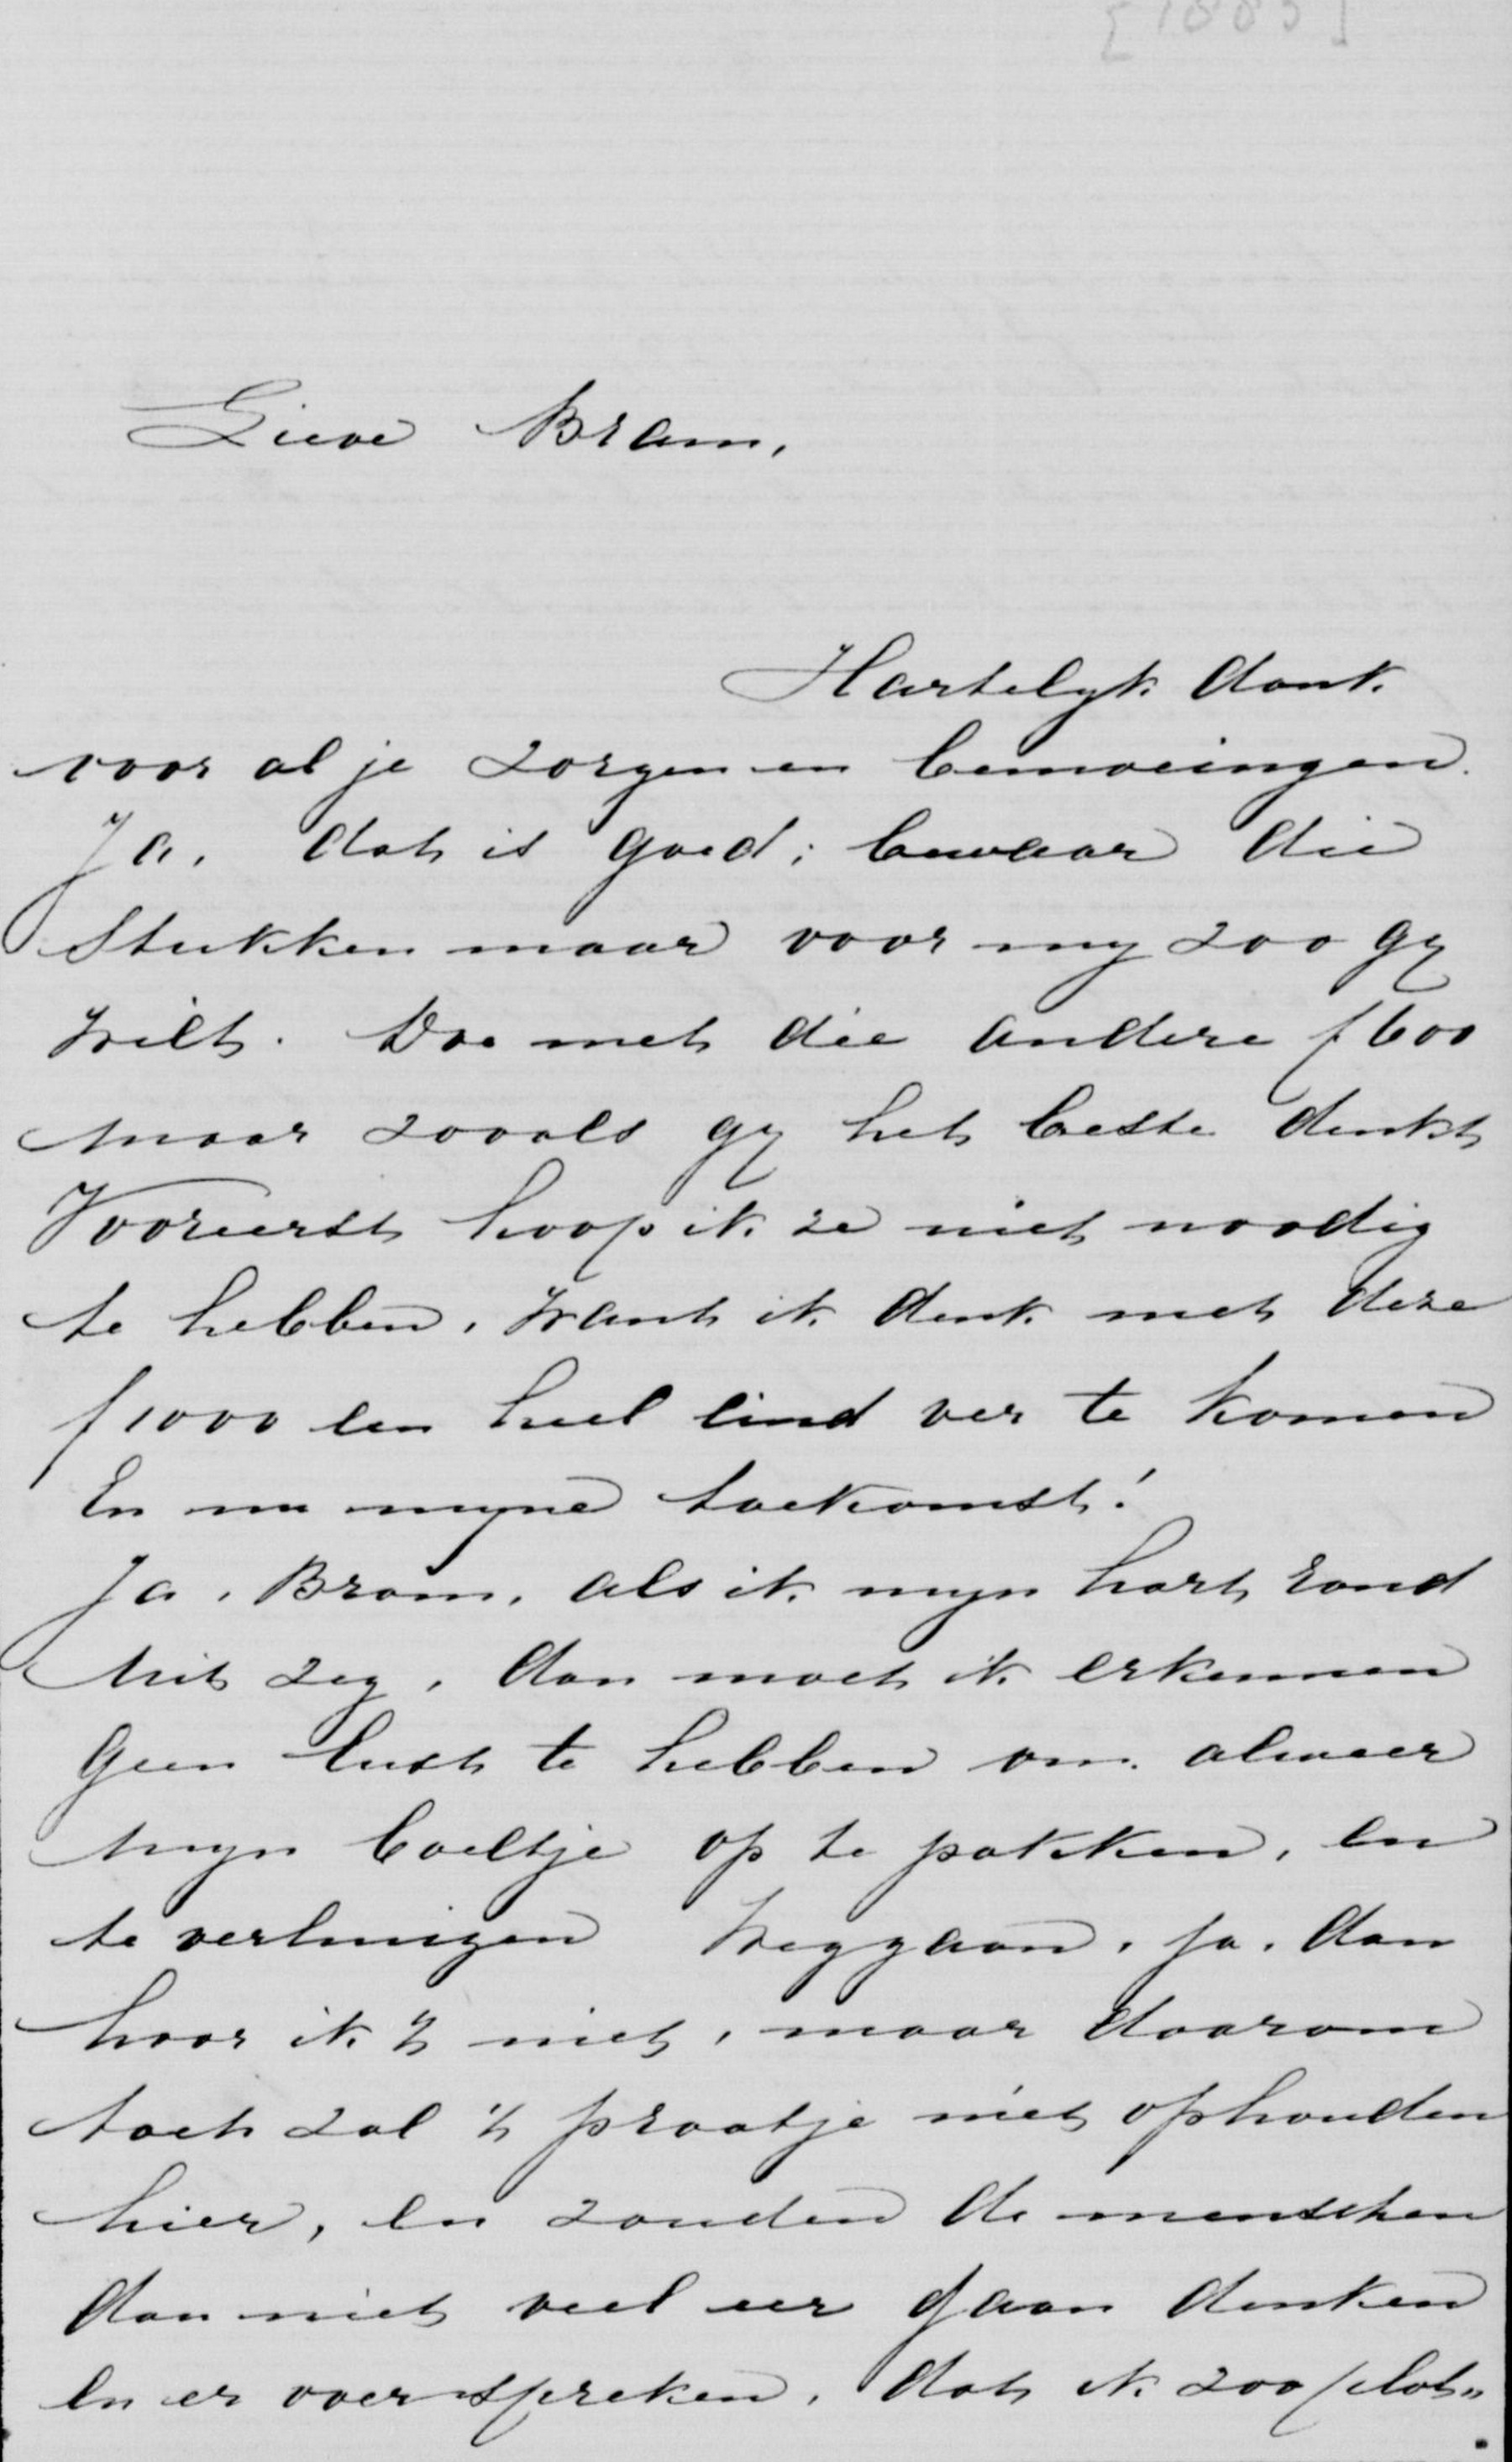 Lieve Bram,
Hartelyk dank
voor al je zorgen en bemoeiingen.
Ja, dat is goed; bewaar die
stukken maar voor my zoo gy
wilt. Doe met die andere f 600
maar zooals gy het beste denkt
Vooreerst hoop ik ze niet noodig
te hebben, want ik denk met deze
f 1000 een heel eind ver te komen
En nu myne toekomst!
Ja, Bram, als ik myn hart rond
uit zeg, dan moet ik erkennen
geen lust te hebben om alweer
myn boeltje op te pakken, en
te verhuizen Weggaan, ja, dan
hoor ik 't niet, maar daarom
toch zal 't praatje niet ophouden
hier, en zouden de menschen
dan niet veel eer gaan denken
en er over spreken, dat ik zoo plot„